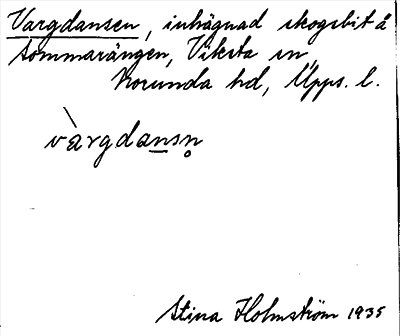 Vargdansen, inhägnad skogsbit å
Sommarängen, Viksta sn,
Norunda hd, Upps. l.
vàrgdansn̥
Stina Holmström 1935